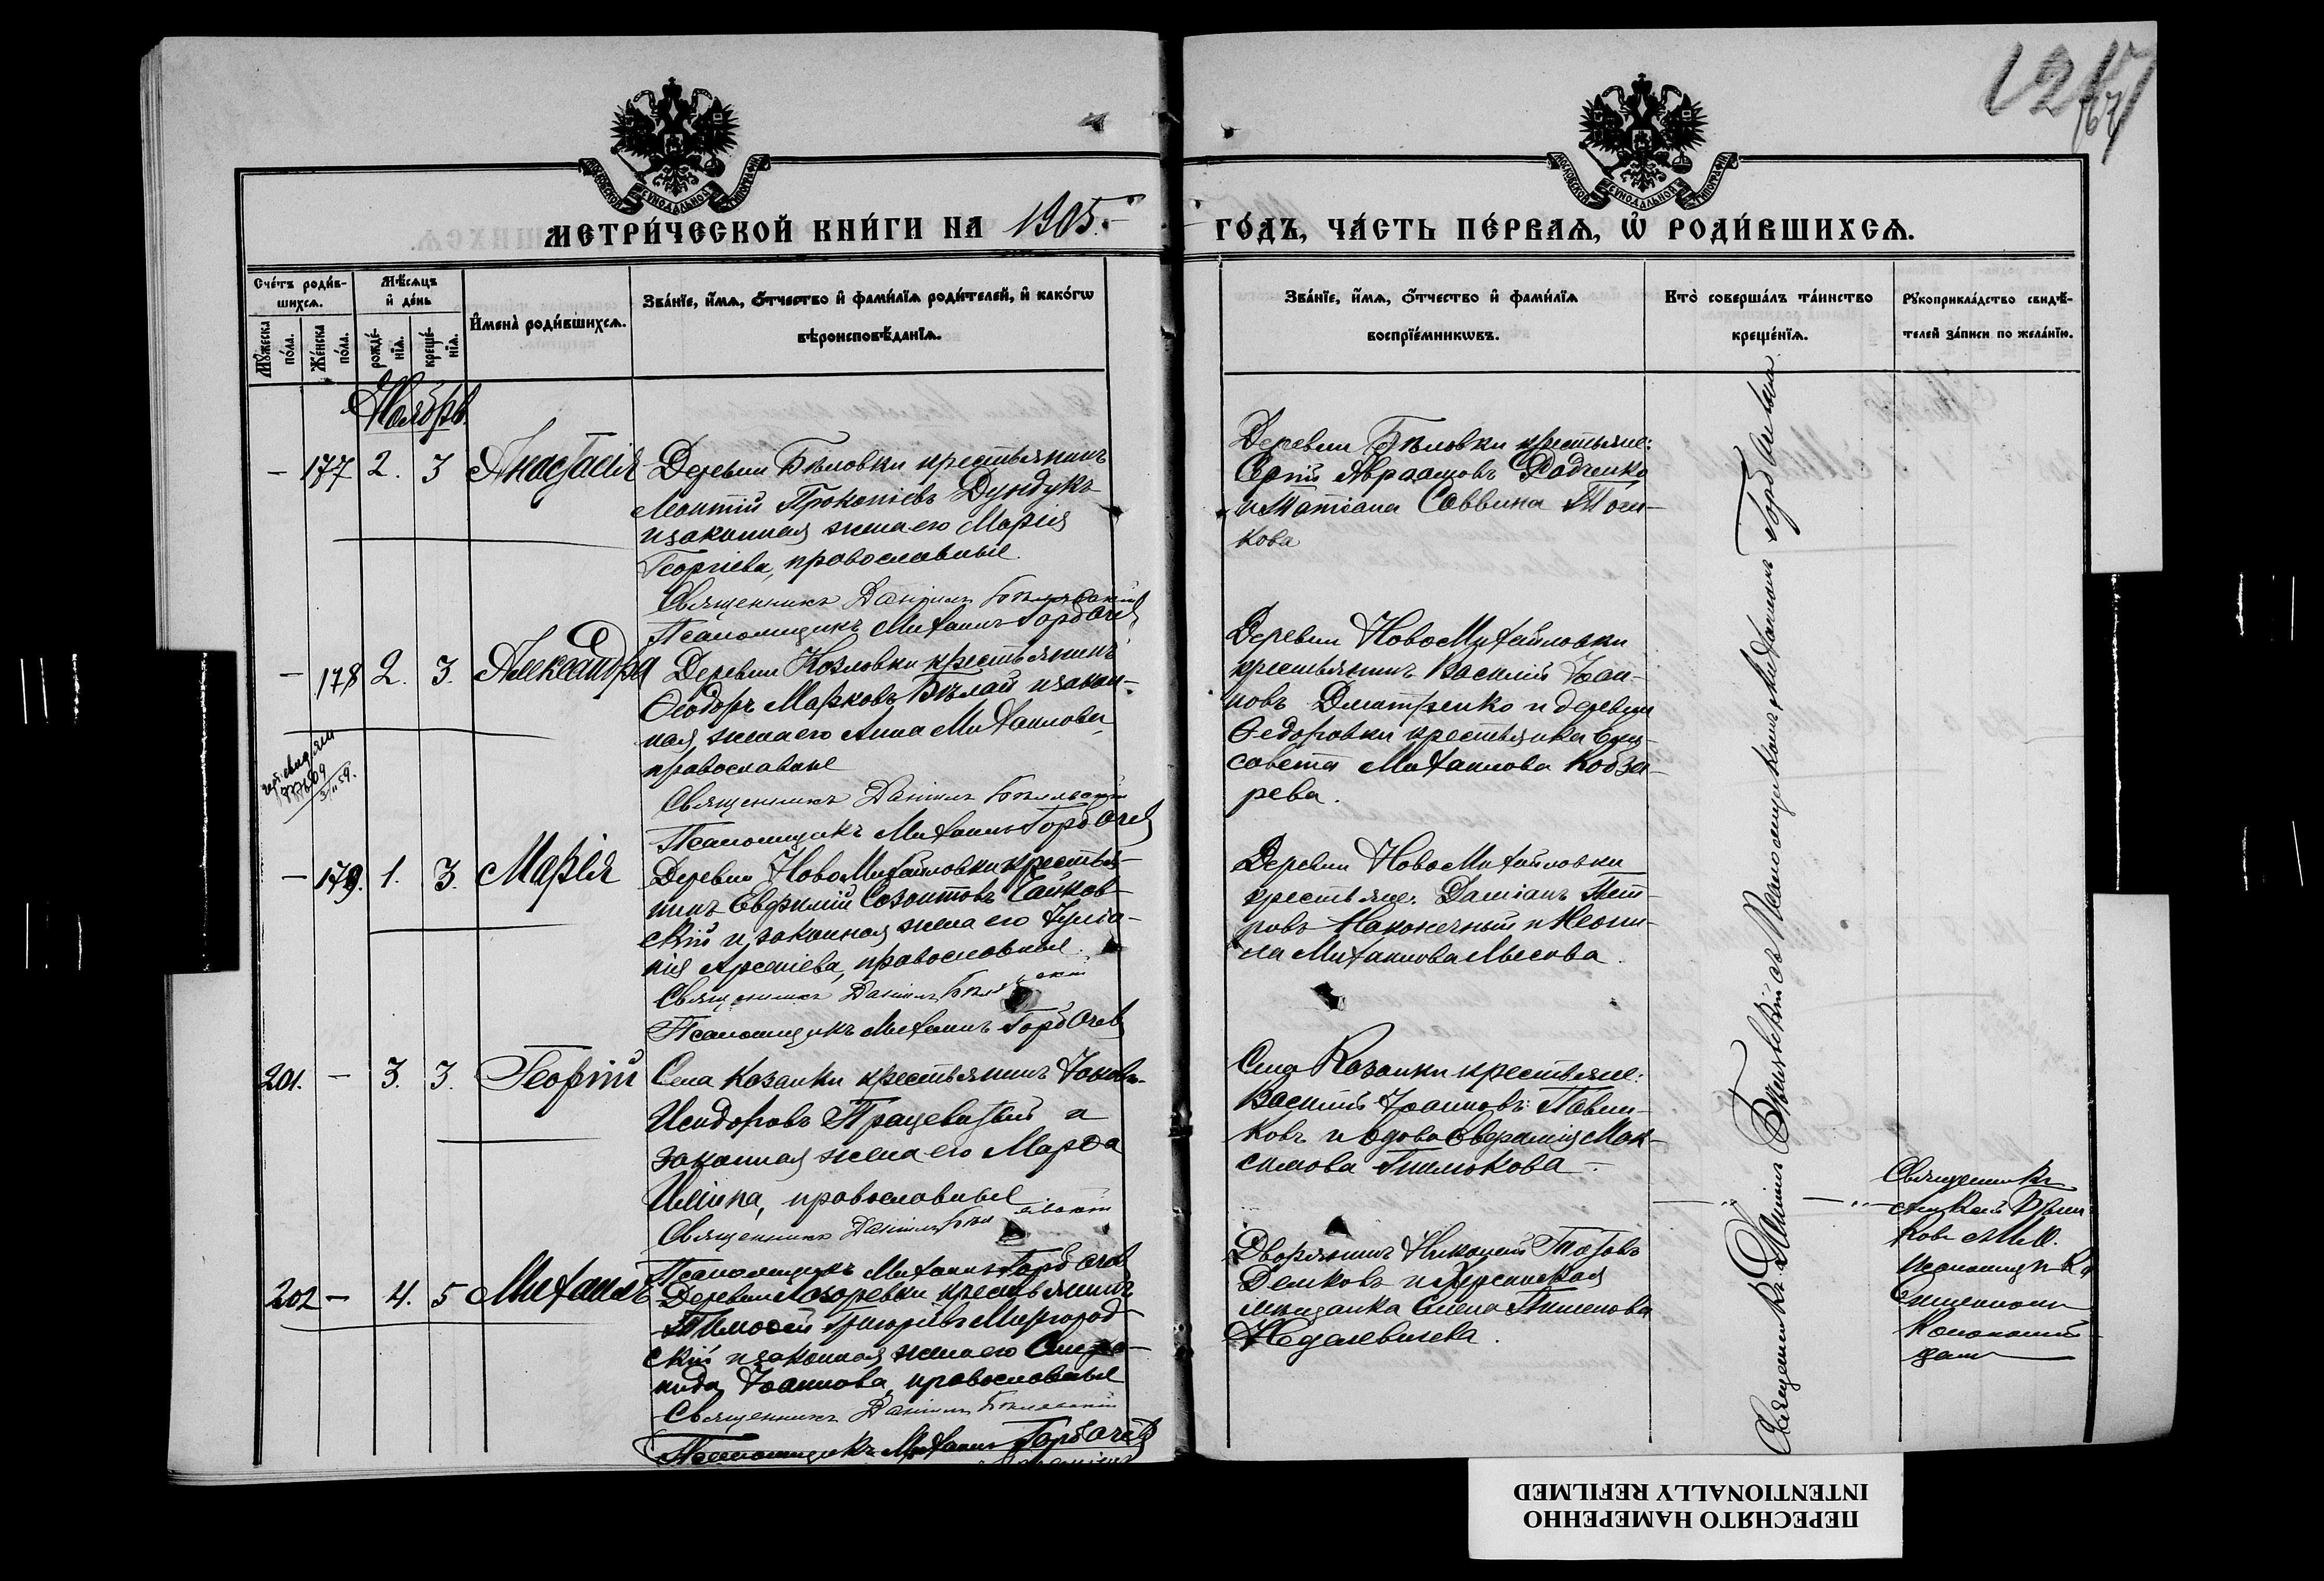 1267
МОСКОВСКОЙ СѴНОДАЛЬНОЙ ТИПОГРАФІИ
МОСКОВСКОЙ СѴНОДАЛЬНОЙ ТИПОГРАФІИ
МЕТРИ́ЧЕСКОЙ КНИ́ГИ НА 1905.
ГО́ДЪ, ЧА́СТЬ ПЕ́РВАѦ, Ѿ РОДИ́ВШИХСѦ.
Сче́тъ роди́в-
шихсѧ.
Мꙋ́жеска
по́ла.
Же́нска
по́ла.
Мѣ́сѧцъ
и҆ де́нь
рожде́-
нїѧ.
креще́-
нїѧ.
И҆мена̀ роди́вшихсѧ.
Зва́нїе, и҆́мѧ, ѻ҆́тчество и҆ фами́лїѧ роди́телей, и҆ како́гѡ
вѣроисповѣ́данїѧ.
Зва́нїе, и҆́мѧ, ѻ҆́тчество и҆ фами́лїѧ
воспрїе́мникѡвъ.
Кто̀ соверша́лъ та́инство
креще́нїѧ.
Рꙋкоприкла́дство свидѣ́-
телей за́писи по жела́нїю.
Ноябрь.
— 177 2. 3 Анастасія
Деревни Бѣловки крестьянинъ
Леонтій Прокопіевъ Дундукъ
и законная жена его Марія
Георгіева, православные.
Священникъ Даніилъ Бѣлявскій
Псаломщикъ Михаилъ Горбачев
Деревни Бѣловки крестьяне:
Сергій Авраамовъ Радченко
и Татіана Саввина
кова
— 178 2. 3. Александра
Деревни Козловки крестьянинъ
Ѳеодоръ Марковъ Бѣлай и закон-
ная жена его Анна Михаилова,
православные
Священникъ Даніилъ Бѣлявскій
Псаломщикъ Михаилъ Горбачев
Деревни НовоМихайловки
крестьянинъ Василій Іоан-
новъ Дмитренко и деревни
Ѳедоровки крестьянка Ели-
савета Михаилова Кобза-
рева.
— 179. 1. 3. Марія
Деревни НовоМихайловки крестья-
нинъ Евфимій Созонтовъ Чайков-
скій и законная жена его Іуліа-
нія Арсеніева, православные.
Священникъ Даніилъ Бѣлявскій
Псаломщикъ Михаилъ Горбачев
Деревни НовоМихайловки
крестьяне: Даміанъ Пет-
ровъ Наконечный и Неони-
ла Михаилова Лысова.
201. — 3. 3. Георгій
Села Казанки крестьянинъ Іаковъ
Исидоровъ Працевитый и
законная жена его Марѳа
Иліина, православные
Священникъ Даніилъ Бѣлявскій
Псаломщикъ Михаилъ Горбачев
Села Казанки крестьяне:
Василій Іоанновъ Павли-
ковъ и вдова Евфимія Мак-
симова
202 — 4. 5 Михаилъ
Деревни Лазоревки крестьянинъ
Тимоѳей Григорьевъ Миргород-
скій и законная жена его Степа-
нида Іоаннова, православные
Священникъ Даніилъ Бѣлявскій
Псаломщикъ Михаилъ Горбачев
Дворянинъ Николай
Демковъ и Херсонская
мѣщанка Елена Пименова
Священникъ Даніилъ Бѣлявскій съ Псаломщикомъ Михаиломъ Горбачевымъ
Священникъ
ПЕРЕСНЯТО НАМЕРЕННО
INTENTIONALLY REFILMED